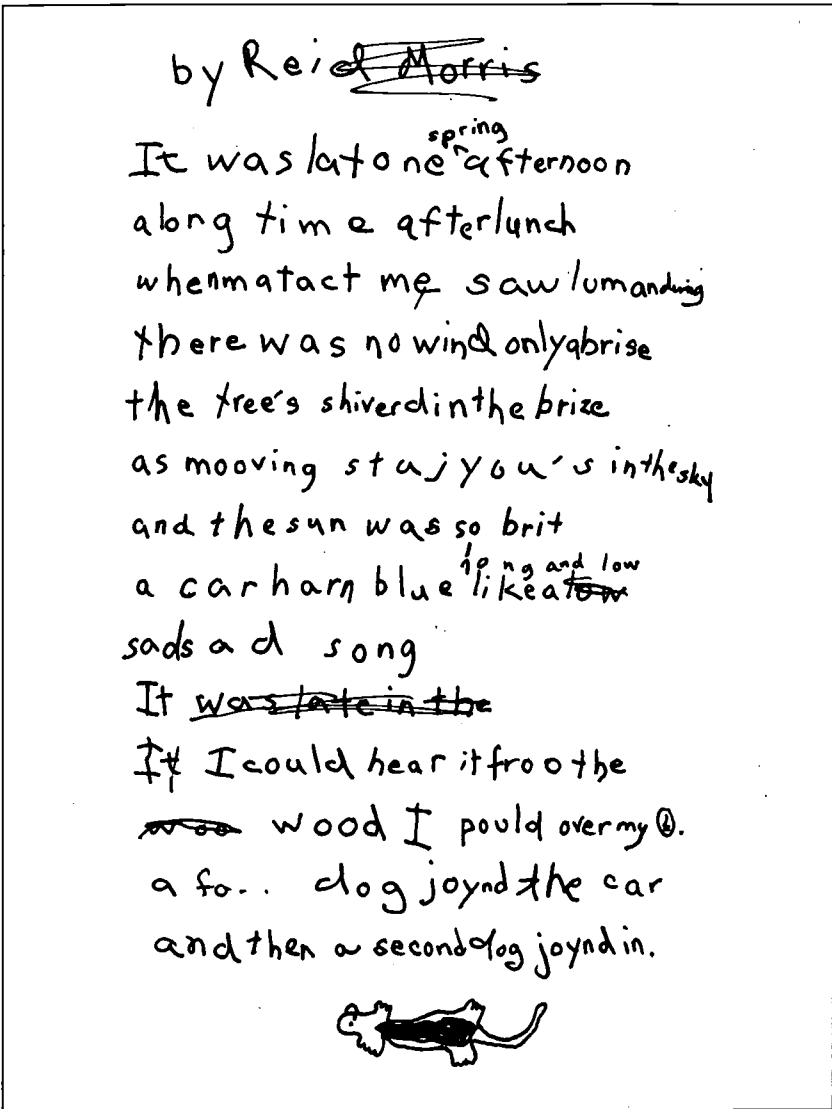 by Reid Morris
It was lat one spring afternoon
along time after lunch
when matact me saw lumanduing
there was no wind only a brise
the tree's shiverd in the brize
as mooving stajyou's in the sky
and the sun was so brit
a car harn blue long and low like a low
sad sad song
It was late in the
It I could hear it froo the
wood I pould over my
a fo.. dog joynd the car
and then a second dog joynd in.